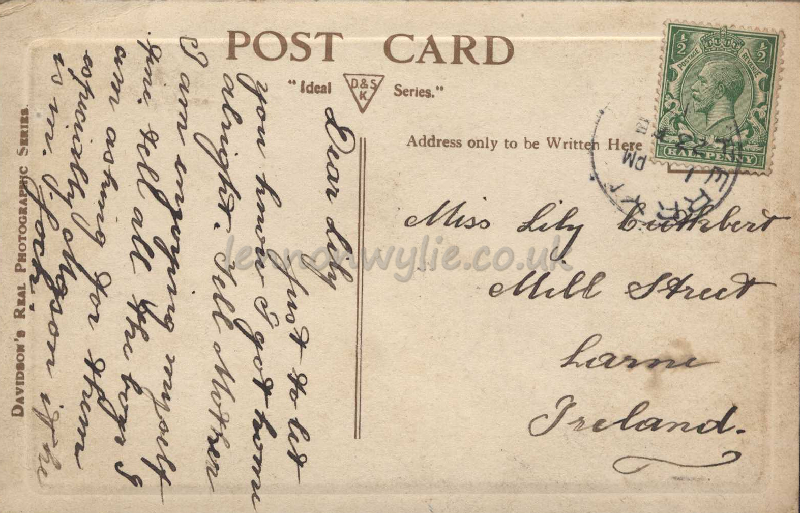 POST CARD
"Ideal D&S K Series."
Address only to be Written Here
½ ½
HALFPENNY
PM
Miss Lily Cuthbert
Mill Street
Larne
Ireland.
Dear Lily
Just to let
you know I got home
alright. Tell Mother
I am enjoying myself
fine. Tell all the boys I
am asking for them
especially Mason if he
is in.
DAVIDSON'S REAL PHOTOGRAPHIC SERIES.
lennonwylie.co.uk